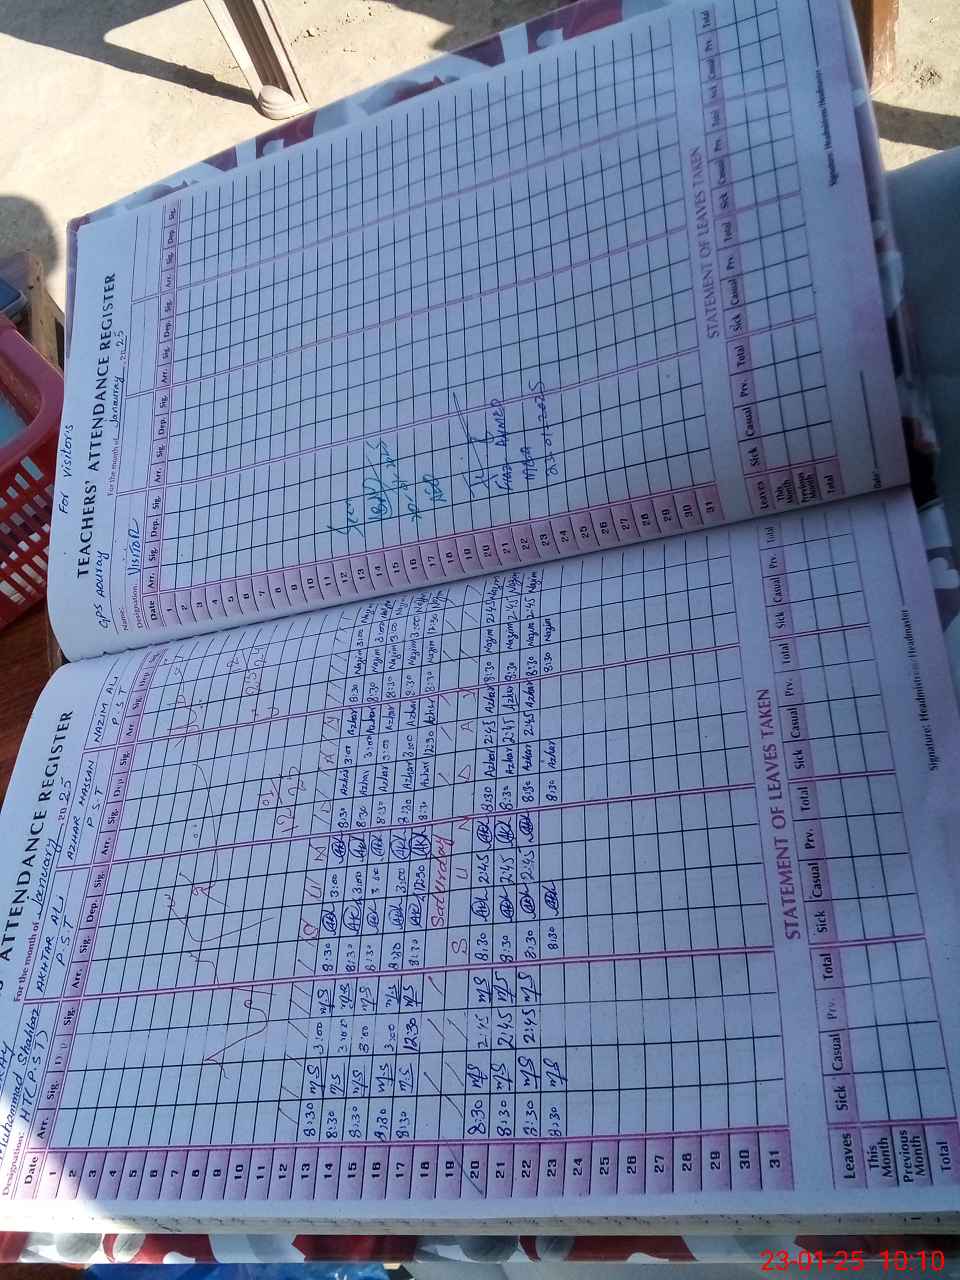 ATTENDANCE REGISTER
For the month of January 2025
Muhammad Shahbaz
AKHTAR ALI
AZHAR HASSAN
NAZIM ALI
Designation: HT(P.S.T)
P.S.T
P.S.T
P.S.T
Date Arr. Sig. Dep. Sig. Arr. Sig. Dep. Sig. Arr. Sig. Dep. Sig. Arr. Sig. Dep. Sig.
1
2
3
4
5
6
7
8
9
10
11
12
13 8:30 M/S 3:00 M/S 8:30 3:00 8:30 Azhar 3:00 Azhar 8:30 Nazim 3:00 Nazim
14 8:30 M/S 3:00 M/S 8:30 3:00 8:30 Azhar 3:00 Azhar 8:30 Nazim 3:00 Nazim
15 8:30 M/S 3:00 M/S 8:30 3:00 8:30 Azhar 3:00 Azhar 8:30 Nazim 3:00 Nazim
16 8:30 M/S 3:00 M/S 8:30 3:00 8:30 Azhar 3:00 Azhar 8:30 Nazim 3:00 Nazim
17 8:30 M/S 12:30 M/S 8:30 12:30 8:30 Azhar 12:30 Azhar 8:30 Nazim 12:30 Nazim
18 Saturday
19 S U N D A Y
20 8:30 M/S 2:45 M/S 8:30 2:45 8:30 Azhar 2:45 Azhar 8:30 Nazim 2:45 Nazim
21 8:30 M/S 2:45 M/S 8:30 2:45 8:30 Azhar 2:45 Azhar 8:30 Nazim 2:45 Nazim
22 8:30 M/S 2:45 M/S 8:30 2:45 8:30 Azhar 2:45 Azhar 8:30 Nazim 2:45 Nazim
23 8:30 M/S 8:30 8:30 Azhar 8:30 Nazim
24
25
26
27
28
29
30
31
STATEMENT OF LEAVES TAKEN
Leaves Sick Casual Prv. Total Sick Casual Prv. Total Sick Casual Prv. Total Sick Casual Prv. Total
This Month
Previous Month
Total
Signature: Headmistress/Headmaster
For visitors
TEACHERS' ATTENDANCE REGISTER
GPS
For the month of Janauray 2025
Name:
Designation: VISITOR
Date Arr. Sig. Dep. Sig. Arr. Sig. Dep. Sig. Arr. Sig. Dep. Sig. Arr. Sig. Dep. Sig.
1
2
3
4
5
6
7
8
9
10
11
12
13
14
15
16
17
18
19
20
21
22
23
24
25
26
27
28
29
30
31
AHMED
23-01-2025
STATEMENT OF LEAVES TAKEN
Leaves Sick Casual Prv. Total Sick Casual Prv. Total Sick Casual Prv. Total Sick Casual Prv. Total
This Month
Previous Month
Total
Date:
Signature: Headmistress/Headmaster
23-01-25 10:10